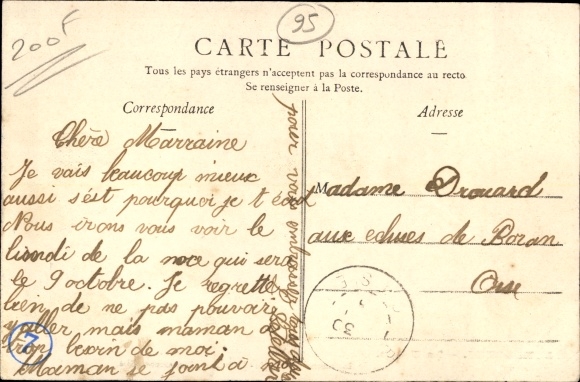 200F
95
CARTE POSTALE
Tous les pays étrangers n'acceptent pas la correspondance au recto
Se renseigner à la Poste.
Correspondance
Adresse
Chère Marraine
Je vais beaucoup mieux
aussi s'ést pourquoi je t'écrit
Nous irons vous voir le
lundi de la noce qui sera
le 9 octobre. Je regrette
bien de ne pas pouvoir
y aller mais maman a
trop besoin de moi.
Maman se joint à
pour vous embrasser
Madame Drouard
aux ecluses de Boran
Oise
7